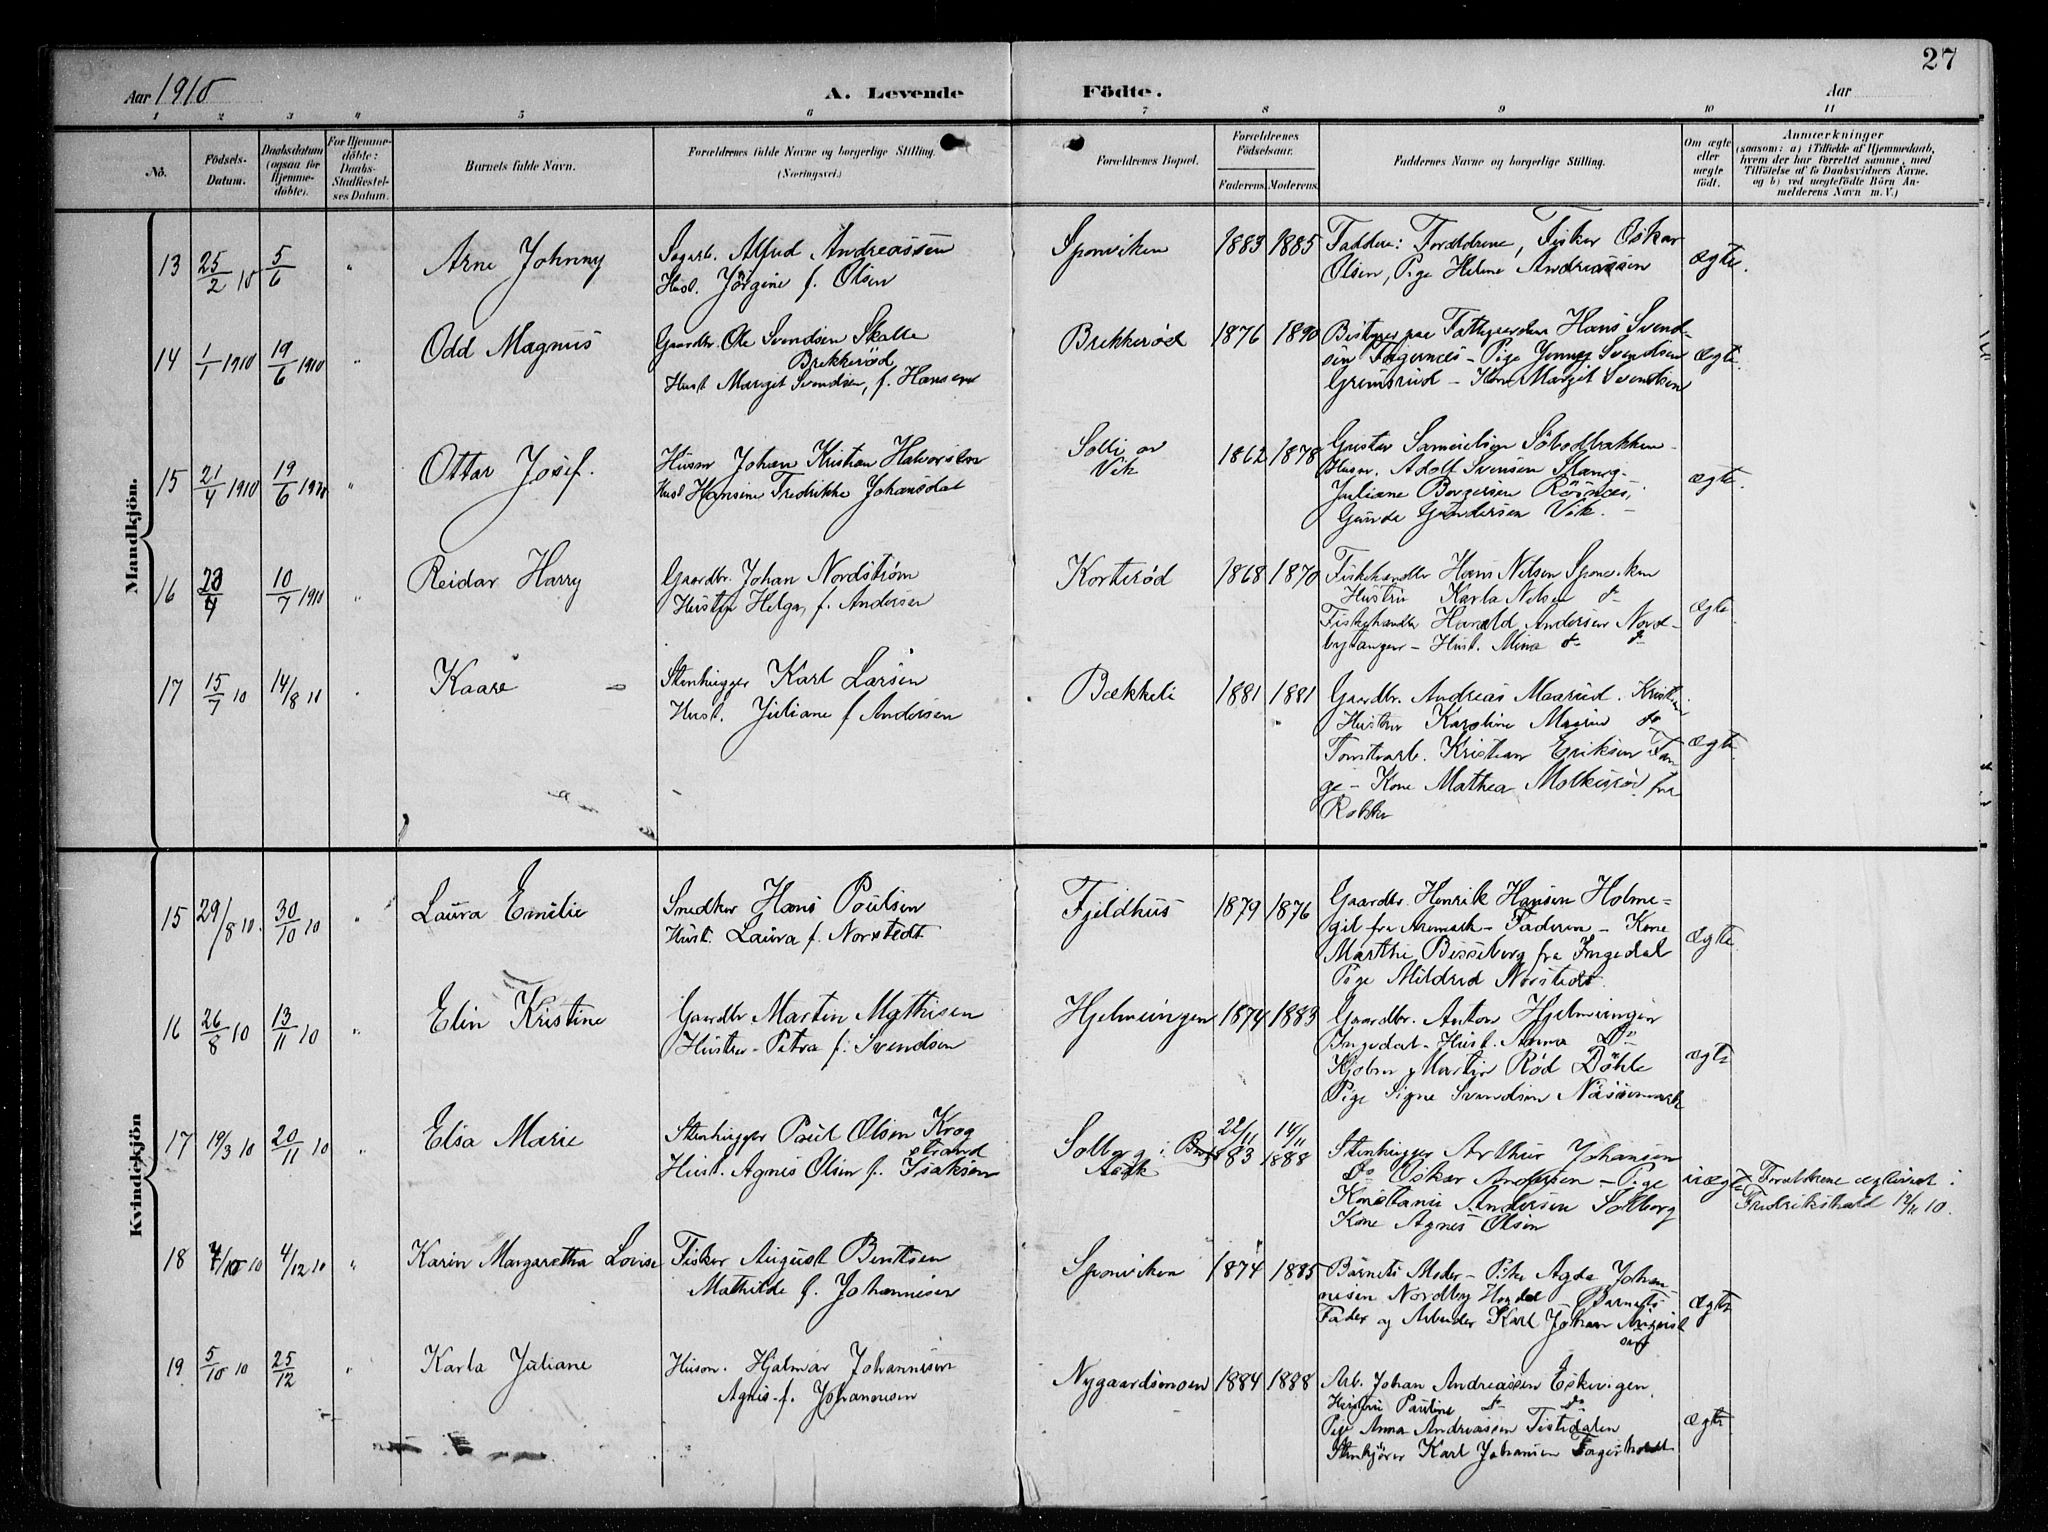 27
Aar 1910
A. Levende Födte.
Aar
1 2 3 4 5 6 7 8 9 10 11
No.
Födsels-
Datum.
Daabsdatum
(ogsaa for
Hjemme-
döbte).
For Hjemme-
döbte:
Daabs-
Stadfæstel-
ses Datum.
Barnets fulde Navn.
Forældrenes fulde Navne og borgerlige Stilling.
(Næringsvei.)
Forældrenes Bopæl.
Forældrenes
Födselsaar.
Faderens. Moderens.
Faddernes Navne og borgerlige Stilling.
Om ægte
eller
uægte
födt.
Anmærkninger
(saasom: a) i Tilfælde af Hjemmedaab,
hvem der har forrettet samme, med
Tilföielse af to Daabsvidners Navne,
og b) ved uægtefödte Börn An-
melderens Navn m. V.)
Mandkjön.
13 25/2 10 5/6 " Arne Johnny
Sagarb. Alfred Andreassen
Hust. Jörgine f. Olsen
Sponviken 1883 1885
Faddere: Forældrene, Fisker Oskar
Olsen, Pige Helene Andreassen
ægte.
14 1/1 1910 19/6 1910 " Odd Magnus
Gaardbr. Ole Svendsen Skalle
Brekkerød
Hust. Margit Svendsen, f. Hansen
Brekkerød 1876 1890
Bestyrer paa Fattiggaarden Hans Svend-
sen Fagernes - Pige Jenny Svendsen
Grimsrud - Kone Margit Svendsen
ægte.
15 21/4 1910 19/6 1910 " Ottar Josef.
Husm Johan Kristian Halvorsen
Hust Hansine Fredrikke Johansdat
Solli av
Vik
1862 1878
Gustav Samuelsen
Husm. Adolf Svensen Stang-
Juliane Borgersen Rösnæs,
Gunda Gundersen Vik.-
ægte.
16 23/4 10/7 1910 " Reidar Harry
Gaardbr. Johan Nordstrøm
Hustru Helga, f. Andersen
Korterød 1868 1870
Fiskehandler Hans Nelsen Sponviken
Hustru Karla Nelsen do
Fiskehandler Harald Andersen Nord-
bytangen - Hust. Mina do do
ægte
17 15/7 10 14/8 10 Kaare
Stenhugger Karl Larsen
Hust. Juliane f Andersen
Bækkeli 1881 1881
Gaardbr. Andreas Maarud.
Hustru Karoline do
Tomtearb. Kristian Eriksen Tan-
ge - Kone Mathea fra
Rokke
ægte.
Kvindekjön
15 29/8 10. 30/10 10 " Laura Emilie
Snedker Hans Poulsen
Hust. Laura f. Norstedt
Fjeldhus 1879 1876
Gaardbr. Henrik Hansen Holme-
gil fra Aremark - Faderen - Kone
Marthe Bisseberg fra Ingedal
Pige Mildred Norstedt.
Ægte.
16 26/8 10 13/11 10 " Elin Kristine
Gaardbr Martin Mathisen
Hustru - Petra f. Svendsen
Hjelmungen 1874 1883
Gaardbr. Anton Hjelmungen
Ingedal - Hust. Anna Do
Martin Rød Döhle
Pige Signe Svendsen
ægte
17 19/3 10 20/11 10 " Elsa Marie
Stenhugger Paul Olsen Krog
strand
Hust. Agnes Olsen f. Isaksen
Solberg i Berg
22/11 83 14/11 1888
Stenhugger Arthur Johansen
Do Oskar Andersen - Pige
Konstanse Andersen Solberg
Kone Agnes Olsen
uægte
Forældrene ægteviet i
Fredrikshald 12/11 10.
18 4/10 10 4/12 10 " Karin Margaretha Lovise
Fisker August Bentsen
Mathilde f. Johannesen
Sponviken 1874 1885
Barnets Moder - Pike Agda Johan-
nesen Nordby Barnets
Fader og Arbeider Karl Johan August
sen
ægte
19 5/10 10 25/12 " Karla Juliane
Husm. Hjalmar Johannesen
Agnes f. Johannesen
Nygaardsmoen 1884 1888
Arb. Johan Andreassen Eskevigen.
Hustru Pauline Do Do
Pige Anna Andreassen Tistedalen
Stenkjører Karl Johansen Fagerholt
ægte